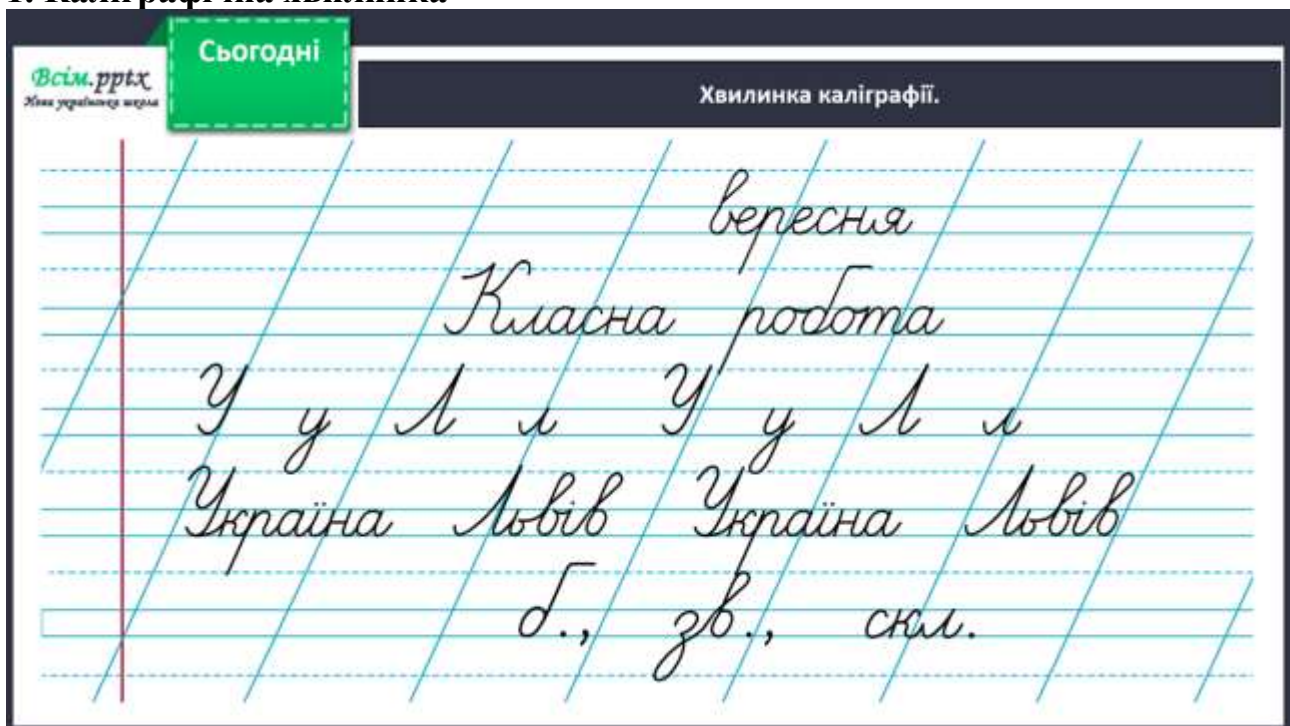 1. Каліграфічна хвилинка
Сьогодні
Всім.pptx
Нова українська школа
Хвилинка каліграфії.
вересня
Класна робота
У у Л л У у Л л
Україна Львів Україна Львів
б., зв., скл.